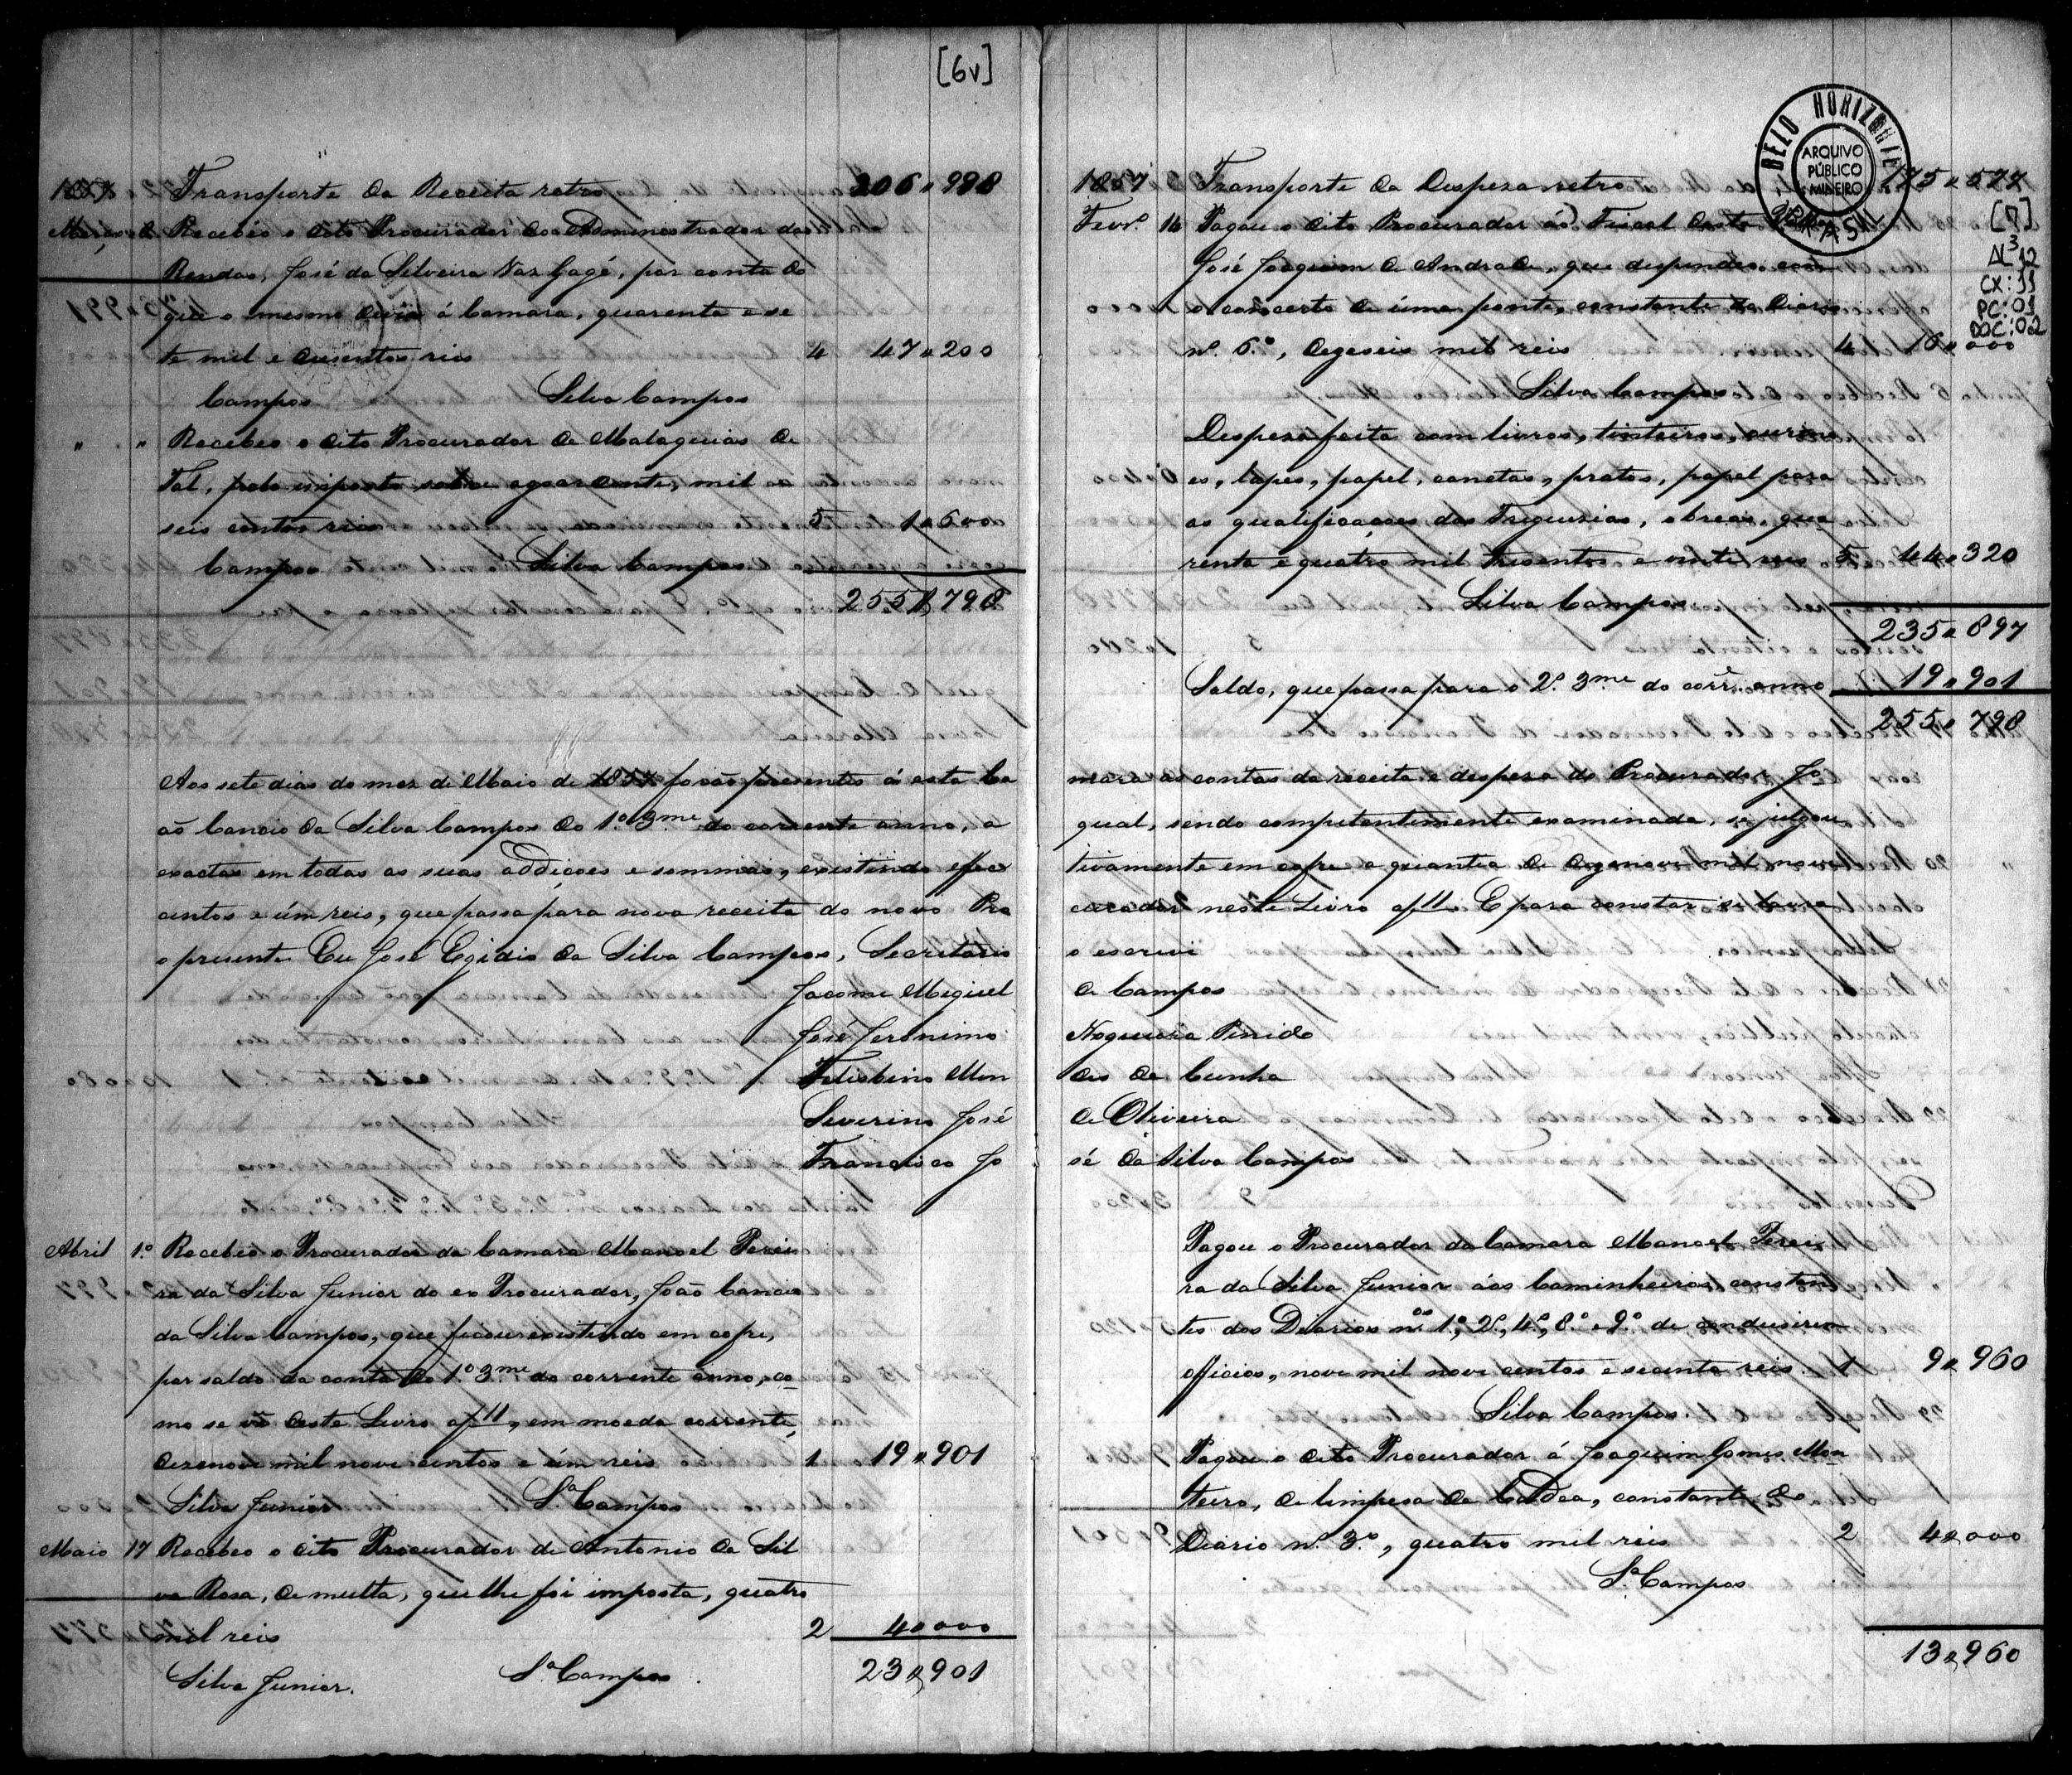 [6v]
1857 Transporte da Receita retro 206$998
Março 2 Recebeo o dito Procurador do Administrador das
Rendas, José da Silveira Vaz Gagé, por conta do
que o mesmo devia á Camara, quarenta e se
te mil e dusentos reis 4 47$200
Campos Silva Campos
" " Recebeo o dito Procurador de Malaquias de
Tal, pelo imposto sobre agoardente, mil
seis centos reis 5 1$600
Campos Silva Campos
255$798
Aos sete dias do mez de Maio de 1857 forão presentes á esta Ca
aõ Cancio da Silva Campos do 1.º 3.me do corrente anno, a
exactas em todas as suas addiçoes e sommas, existindo effec
centos e úm reis, que passa para nova receita do novo Pro
o presente Eu José Egidio da Silva Campos, Secretario
Jacome Miguel
José Jeronimo
Felisbino Men
Severino José
Francisco Jo
Abril 1.º Recebeo o Procurador da Camara Manoel Perei
ra da Silva Junior do ex Procurador, João Cancio
da Silva Campos, que ficou existindo em cofre,
por saldo da conta do 1.º 3.me do corrente anno, co
mo se vê deste Livro a f 11, em moeda corrente,
desenove mil nove centos e úm reis 1 19$901
Silva Junior S.ª Campos
Maio 17 Recebeo o dito Procurador de Antonio da Sil
va Rosa, de multa, que lhe foi imposta, quatro
mil reis 2 4$000
Silva Junior. S.ª Campos
23$901
BELO HORIZONTE
ARQUIVO
PÚBLICO
MINEIRO
BRASIL
[7]
AL 3 12
CX: 11
PC: 01
DOC: 02
1857 Transporte da Despeza retro 175$577
Fevr.º 16 Pagou o dito Procurador áo Fiscal desta
José Joaquim de Andrade, que despendeo com
o concerto de úma ponte, constante do Diario
nº. 6.º, deseseis mil reis 4 16$000
Silva Campos
Despeza feita com livros, tinteiros,
es, lapes, papel, canetas, pratos, papel para
as qualificaçoes das Freguezias, obreas, qua
renta e quatro mil tresentos e vinte reis 5 44$320
Silva Campos
235$897
Saldo, que passa para o 2.º 3.me do corr.e anno 19$901
255$798
mara as contas da receita e despeza do Procurador Jo
qual, sendo competentemente examinada, se julgou
tivamente em cofre a quantia de dezenove mil nove
curador neste Livro a f 11. E para constar se lavra
o escrevi
de Campos
Nogueira Penido
des da Cunha
de Oliveira
sé da Silva Campos
Pagou o Procurador da Camara Manoel Perei
ra da Silva Junior áos Caminheiros, constan
tes dos Diarios n.os 1.º, 2.º, 4.º, 8.º e 9.º de conduzirem
officios, nove mil nove centos e secenta reis 1 9$960
Silva Campos.
Pagou o dito Procurador á Joaquim Gomes Mon
teiro, de limpesa da Cadea, constante do
Diario nº. 3.º, quatro mil reis 2 4$000
S.ª Campos
13$960